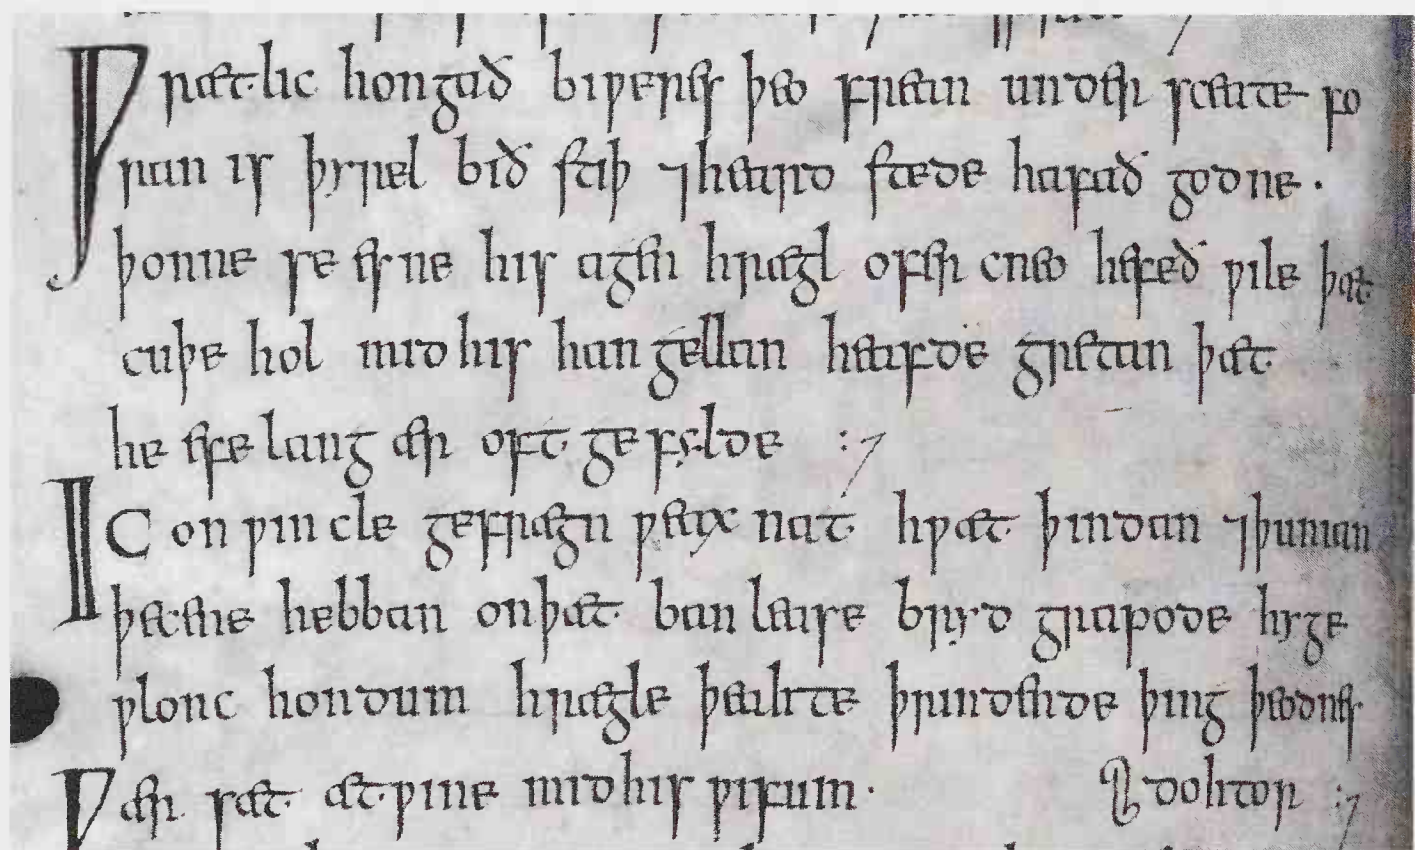 Ƿrætlic hongað bi ƿeres þeo frean under sceate fo
ran is þyrel bið stiþ ⁊ heard stede hafað godne·
þonne se esne his agen hrægl ofer cneo hefeð ƿile þæt
cuþe hol mid his hangellan heafde gretan þæt
he efe lang ær oft gefylde :⁊
IC on ƿincle gefrægn ƿeax nat hƿæt þindan ⁊ þunian
þecene hebban on þæt ban lease bryd grapode hyge
ƿlonc hondum hrægle þeahte þrindende þing þeodnes
Ƿær sæt æt ƿine mid his ƿifum· dohtor :⁊